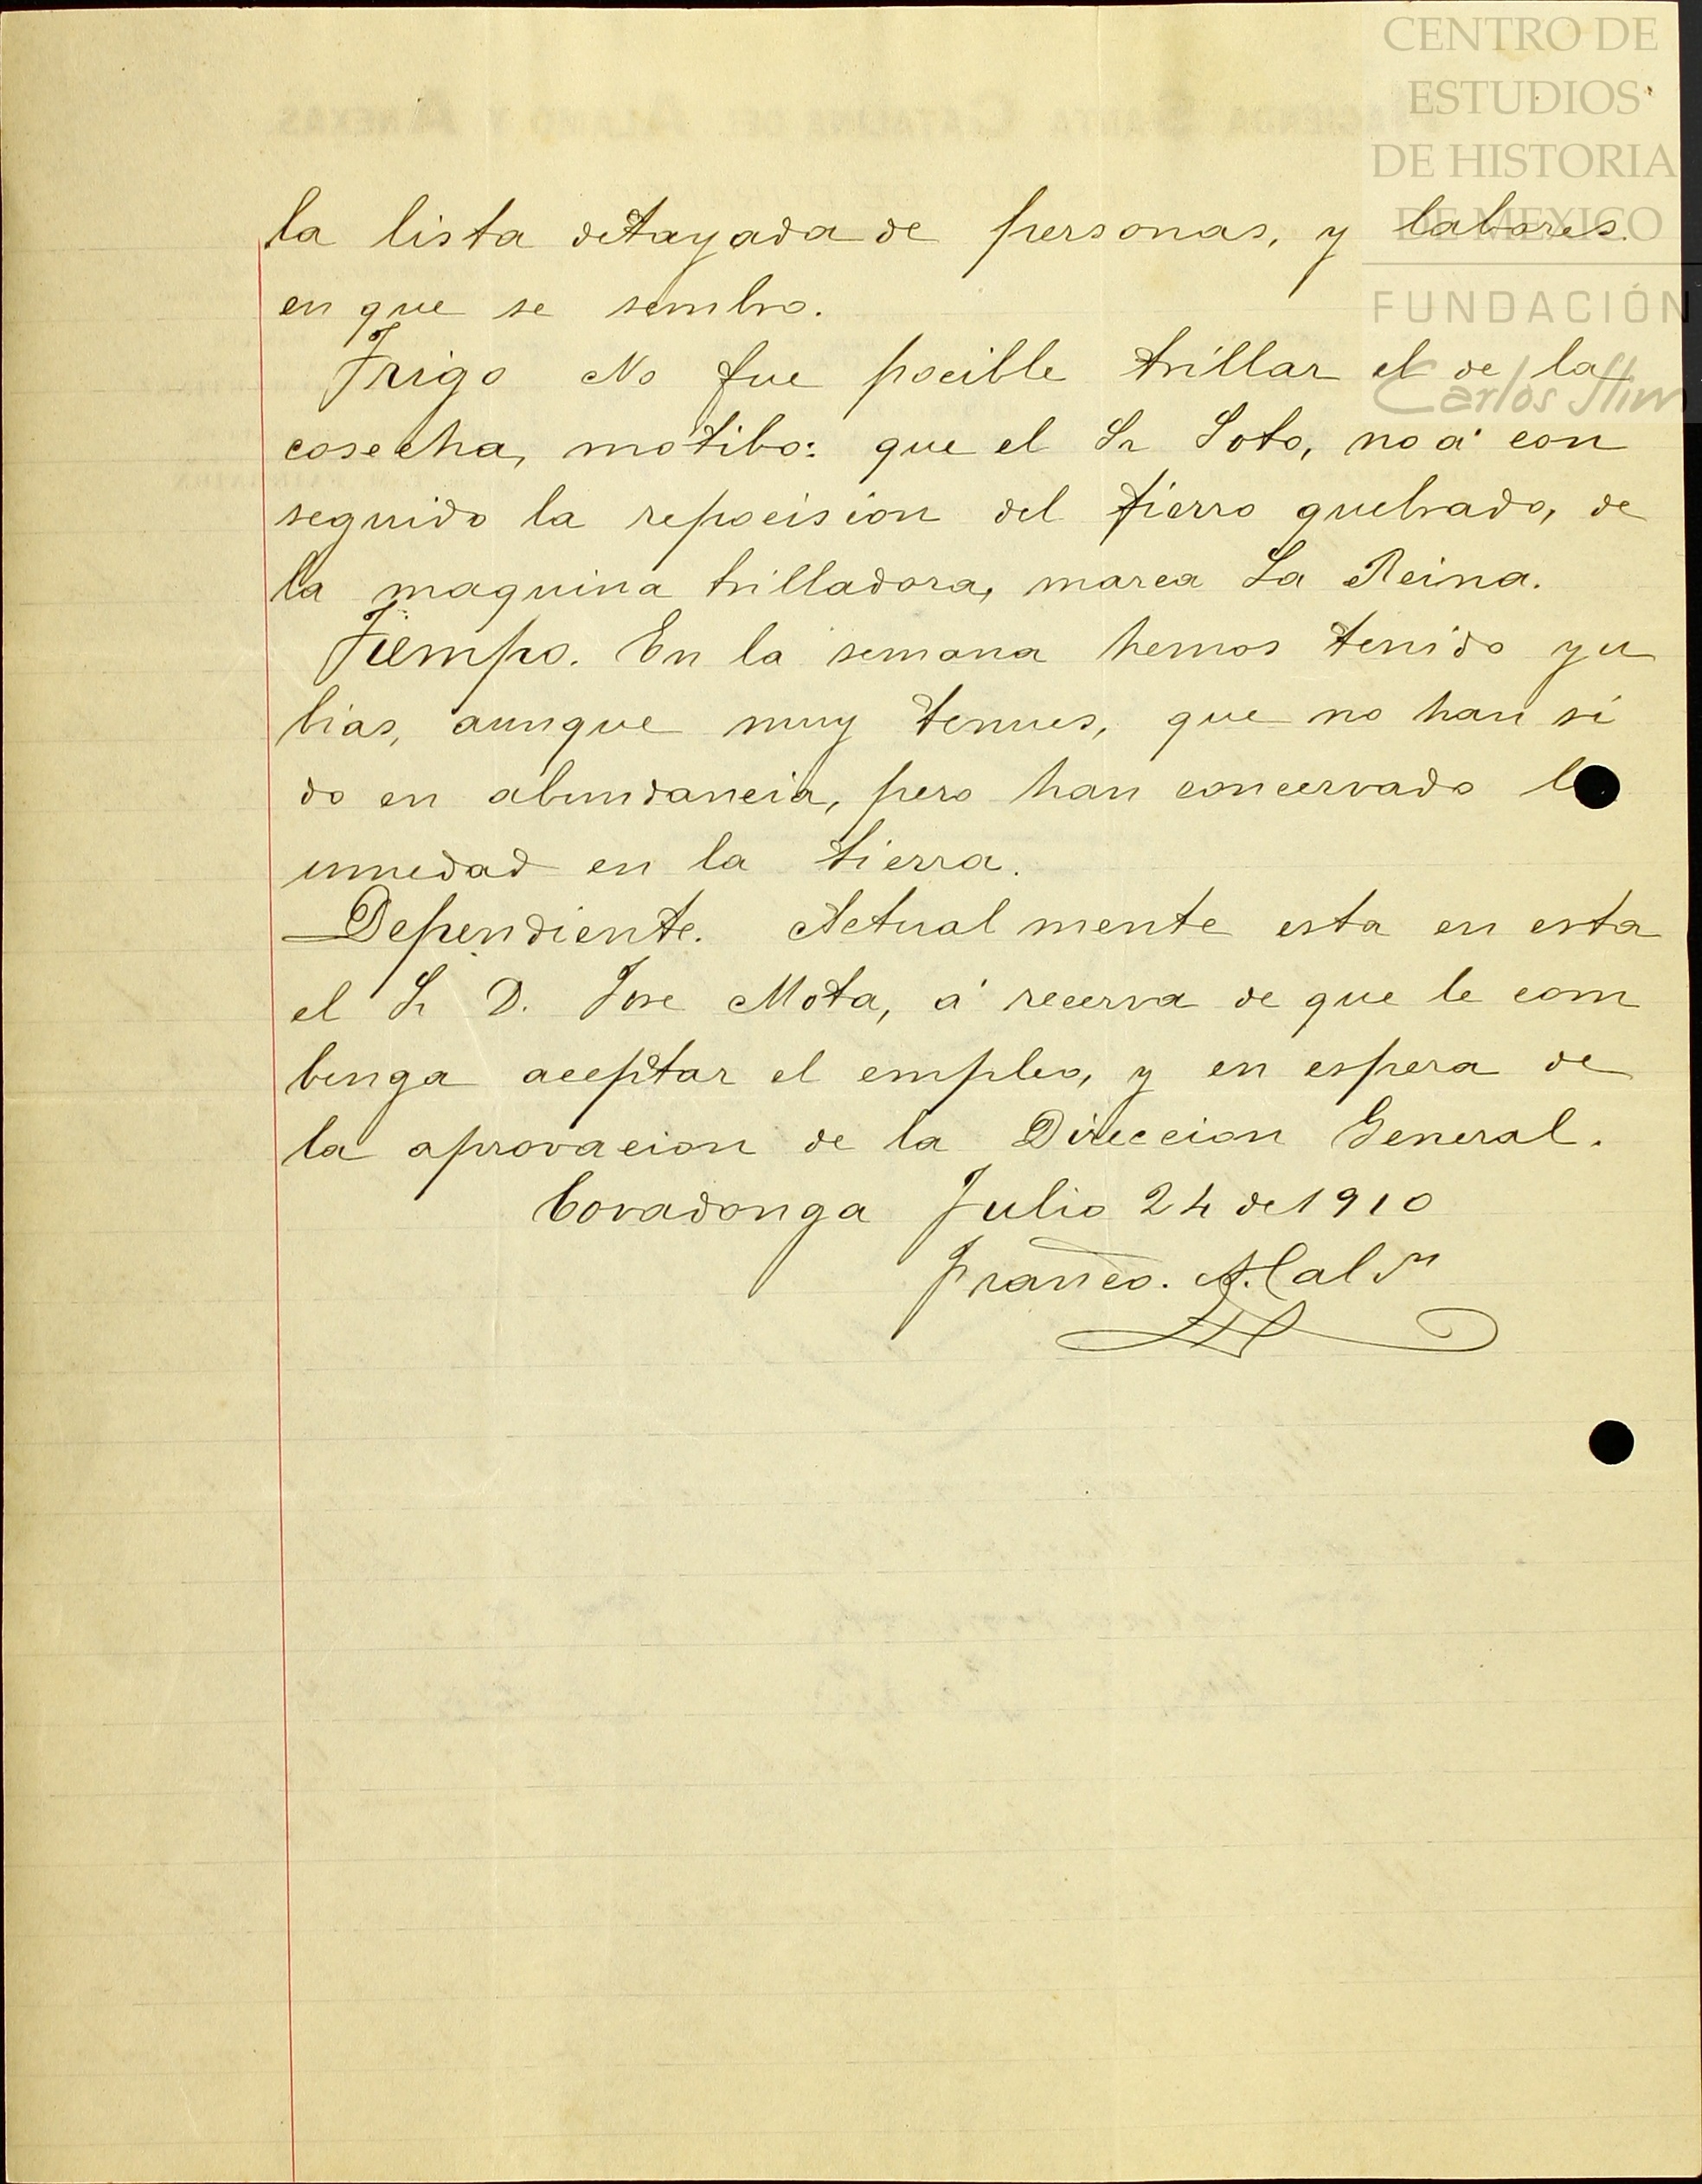 CENTRO DE
ESTUDIOS
DE HISTORIA
DE MEXICO
FUNDACIÓN
Carlos Slim
la lista detayada de personas, y labores
en que se sembro.
Trigo No fue pocible trillar el de la
cosecha, motibo: que el Sr Soto, no á con
seguido la repocision del fierro quebrado, de
la maquina trilladora, marca La Reina.
Tiempo. En la semana hemos tenido yu
bias, aunque muy tenues, que no han si
do en abundancia, pero han concervado l
umedad en la tierra.
Dependiente. Actualmente esta en esta
el Sr D. Jose Mota, á recerva de que le com
benga aceptar el empleo, y en espera de
la aprovacion de la Direccion General.
Covadonga Julio 24 de 1910
Franco.